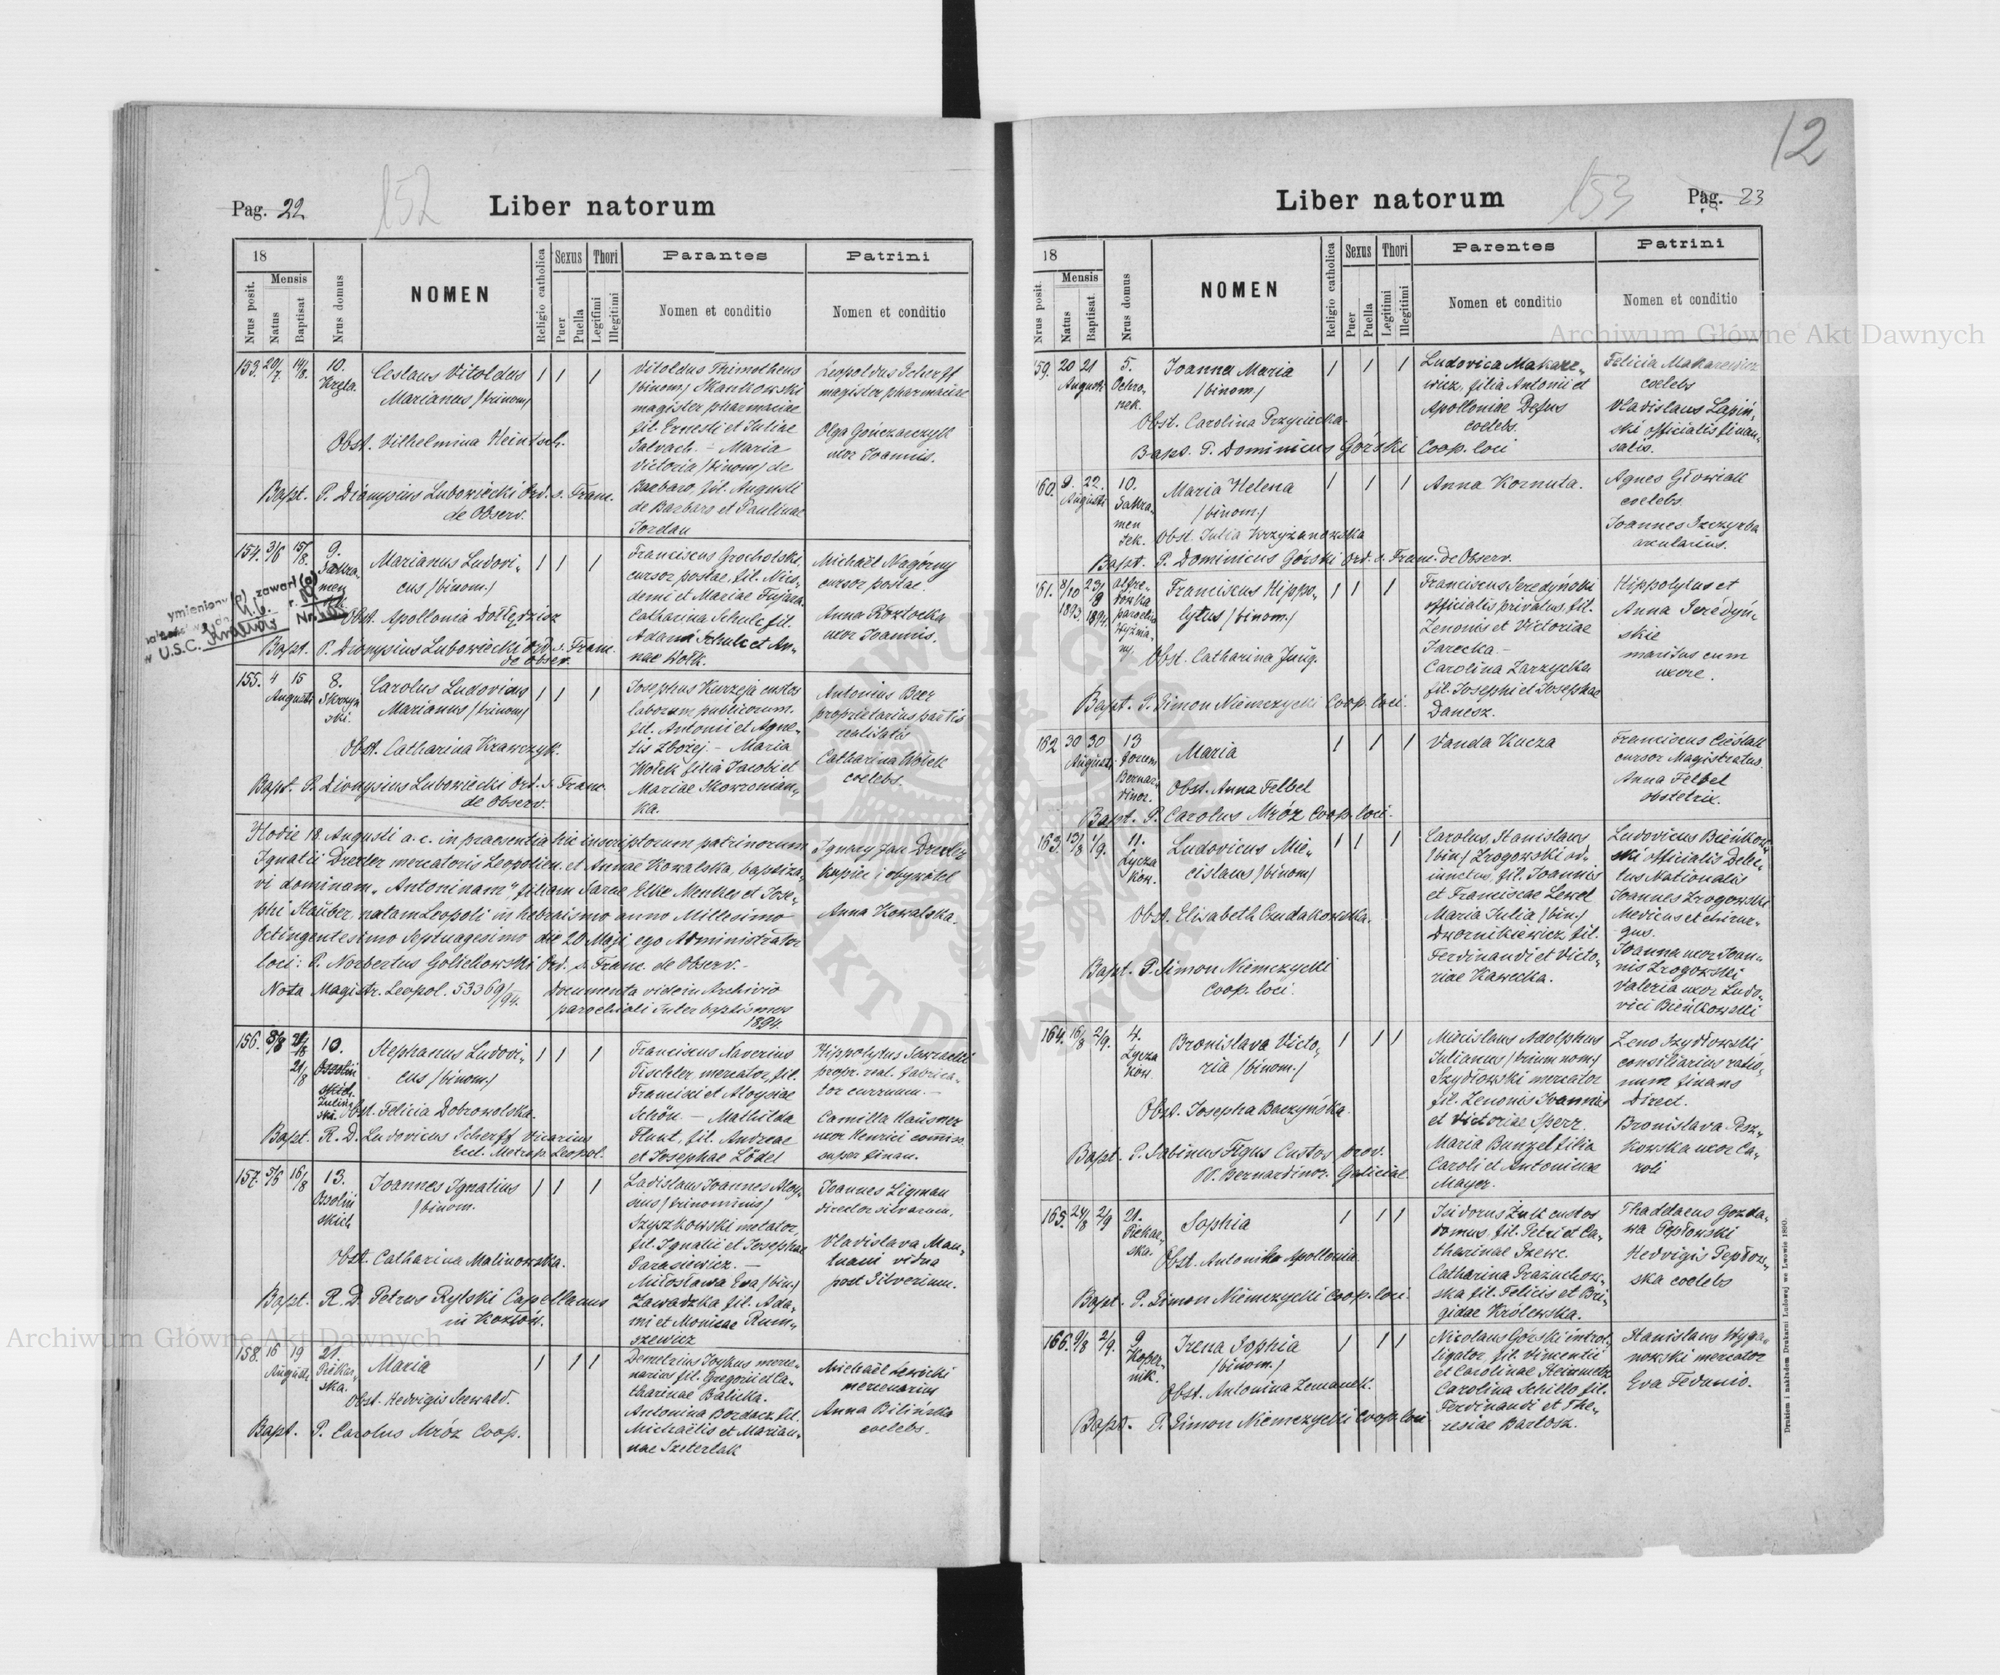 12
Pag. 22
152
Liber natorum
18
Mensis
Nrus posit.
Natus
Baptisat
Nrus domus
NOMEN
Religio catholica
Sexus
Puer
Puella
Thori
Legitimi
Illegitimi
Parantes
Nomen et conditio
Patrini
Nomen et conditio
153. 20/7 14/8. 10.
Ceslaus Vitoldus
Marianus /trinom/
Obst. Vilhelmina Heintsch.
Bapt. P. Dionysius Lubowiecki Ord. s. Franc.
de Observ.
Vitoldus Thimotheus
/binom/ Mankowski
magister pharmaciae
fil. Ernesti et Juliae
Maria
Victoria /binom/ de
Barbaro, fil. Augusti
de Barbaro et Paulinae
Jordan
Leopoldus Scherff
magister pharmaciae
Olga Gończarczyk
uxor Joannis.
154. 3/6 15/8. 9.
Marianus Ludovi-
cus /binom./
Obst. Apollonia Dołędzisz
Bapt. P. Dionysius Lubowiecki Ord. s. Franc.
de Observ.
Franciscus Grochotski,
cursor postae, fil. Nico-
demi et Mariae Fujara.
Catharina Schulc fil.
Adami Schulc et An-
nae Wołk.
Michael Nagórny
cursor postae.
Anna Kozłocka
uxor Joannis.
w U.S.C. Kraków
155. 4 15 8.
Augusti
Carolus Ludovicus
Marianus /trinom/
Obst. Catharina Krawczyk.
Bapt. P. Dionysius Lubowiecki Ord. s. Franc.
de Observ.
Josephus Kurzeja custos
laborum publicorum.
fil. Antonii et Agne-
tis Zbożej. - Maria
Wołek filia Jacobi et
Mariae Skowronian-
ka.
Antonius Beer
proprietarius partis
realitatis
Catharina Wołek
coelebs.
Hodie 18. Augusti a. c. in praesentia hic inscriptorum patrinorum
Ignatii Drexler mercatoris Leopolien. et Annae Kowalska, baptiza-
vi dominam "Antoninam", filiam Sarae Elke Menkes et Jose-
phi Stauber, natam Leopoli in hebraismo anno Millesimo
Octingentesimo Septuagesimo die 20 Maji ego Administrator
loci: P. Norbertus Golichowski Ord. s. Franc. de Observ.-
Nota Magistr. Leopol. 53369/94. Documenta vide in Archivio
parochiali Inter baptismos
1894.
Ignacy Jan Drexler
kupiec i obywatel
Anna Kowalska.
156. 10.
Stephanus Ludovi-
cus /binom./
Obst. Felicia Dobrowolska.
Bapt. R. D. Ludovicus Scherff Vicarius
Eccl. Metrop. Leopol.
Franciscus Xaverius
Tischler, mercator, fil.
Francisci et Aloysiae
Schön - Mathilda
Flunt, fil. Andreae
et Josephae Lödel
Hippolytus
propr. real. fabrica-
tor curruum. -
Camilla Hausner
uxor Henrici comiss.
super finan.
157. 5/6 16/8 13.
Ossoliń
skich
Joannes Ignatius
/binom.
Obst. Catharina Malinowska.
Bapt. R. D. Petrus Rylski Capellanus
in Kozłów.
Ladislaus Joannes Aloy-
sius /trinominis/
Szyszkowski metator,
fil. Ignatii et Josephae
Parasiewicz. -
Miłosława Eva /bin./
Zawadzka fil. Ada-
mi et Monicae Rum-
szewicz
Joannes Ligman
director silvarum.
Vladislava Man-
vidua
post Silverium.
158. 16 19 21.
August. Piekar-
ska.
Maria
Obst. Hedvigis Seewald.
Bapt. P. Carolus Mróz Coop.
Demetrius merce-
narius fil. Gregorii et Ca-
tharinae Balicka.
Antonina Bordacz fil.
Michaelis et Marian-
nae Szeterlak
Michael Lewicki
mercenarius
Anna Bilińska
coelebs.
Liber natorum
153
Pag. 23
18
Mensis
Nrus posit.
Natus
Baptisat
Nrus domus
NOMEN
Religio catholica
Sexus
Puer
Puella
Thori
Legitimi
Illegitimi
Parentes
Nomen et conditio
Patrini
Nomen et conditio
159. 20 21 5.
August. Ochro-
nek.
Joanna Maria
/binom./
Obst. Carolina Przysiecka.
Bapt. P. Dominicus Górski Coop. loci
Ludovica Makare-
wicz, filia Antonii et
Apolloniae Depus
coelebs.
Felicia Makarewicz
coelebs
Vladislaus Lapiń-
ski officialis finan-
salis.
160. 9. 22. 10.
Augusti Sakra-
men
tek.
Maria Helena
/binom./
Obst. Julia Krzyżanowska
Bapt. P. Dominicus Górski Ord. s. Franc. de Observ.
Anna Kornuta.
Agnes Głowiak
coelebs.
Joannes Szczyrba
arcularius.
161. 8/10 1893 23/8 1894.
Franciscus Hippo-
lytus /binom./
Obst. Catharina Jung.
Bapt. P. Simon Niemczycki Coop. loci.
Franciscus Seredyński
officialis privatus fil.
Zenonis et Victoriae
Jarecka -
Carolina Zarzycka
fil. Josephi et Josephae
Danesz.
Hippolytus et
Anna Seredyń-
skie
maritus cum
uxore.
162 30 30 13
August. forum
Bernar-
dinor.
Maria
Obst. Anna Felbel
Bapt. P. Carolus Mróz Coop. loci.
Vanda Kucza
Franciscus Cieślak
cursor Magistratus.
Anna Felbel
obstetrix.
163. 13/8 1/9. 11.
Łycza
ków.
Ludovicus Mie-
cislaus /binom/
Obst. Elisabeth Cudakowska.
Bapt. P. Simon Niemczycki
Coop. loci.
Carolus, Stanislaus
/bin./ Zrogowski ad-
iunctus, fil. Joannis
et Franciscae Lewel
Maria Julia /bin./
Dwornikiewicz fil.
Ferdinandi et Victo-
riae Kawecka.
Ludovicus Bieńkow-
ski officialis debi-
tus Nationalis
Joannes Zrogowski
Medicus et chirur-
gus.
Joanna uxor Joan-
nis Zrogowski
Valeria uxor Ludo-
vici Bieńkowski
164. 16/8 2/9. 4.
Łycza
ków.
Bronislava Victo-
ria /binom./
Obst. Josepha Baczyńska.
Bapt. P. Sabinus Figus Custos prov.
PP. Bernardinor. Galiciae.
Miecislaus Adolphus
Julianus /trium nom./
Szydłowski mercator
fil. Zenonis Joannis
et Victoriae Sperr.
Maria Bunzel filia
Caroli et Antoninae
Mayer.
Zeno Szydłowski
consiliarius ratio-
num finans
Direct.
Bronislava Pesz-
kowska uxor Ca-
roli
165. 24/8 2/9 21.
Piekar-
ska.
Sophia
Obst. Antonina Apollonia.
Bapt. P. Simon Niemczycki Coop. loci.
Isidorus Żułt custos
domus, fil. Petri et Ca-
tharinae Szewc.
Catharina Prażuchow-
ska fil. Felicis et Bri-
gidae Królewska.
Thaddaeus Gozda-
wa Pepłowski
Hedvigis Pepłow-
ska coelebs
166. 9/8 2/9. 9
Koper-
nik.
Irena Sophia
/binom./
Obst. Antonina Zemanek.
Bapt. P. Simon Niemczycki Coop. loci
Nicolaus Górski introl-
ligator, fil. Vincentii
et Carolinae Heinmetz
Carolina Schillo fil.
Ferdinandi et The-
resiae Bartosz.
Stanislaus Wyga-
nowski mercator
Eva Fedunio.
Drukiem i nakładem Drukarni Ludowej we Lwowie 1890.
Archiwum Główne Akt Dawnych
Archiwum Główne Akt Dawnych